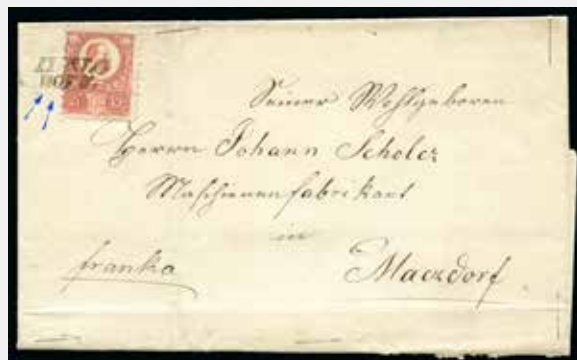 Seiner Wohlgeboren
Herrn Johann Scholcz
Maschienenfabrikant
in
franko
Maczdorf